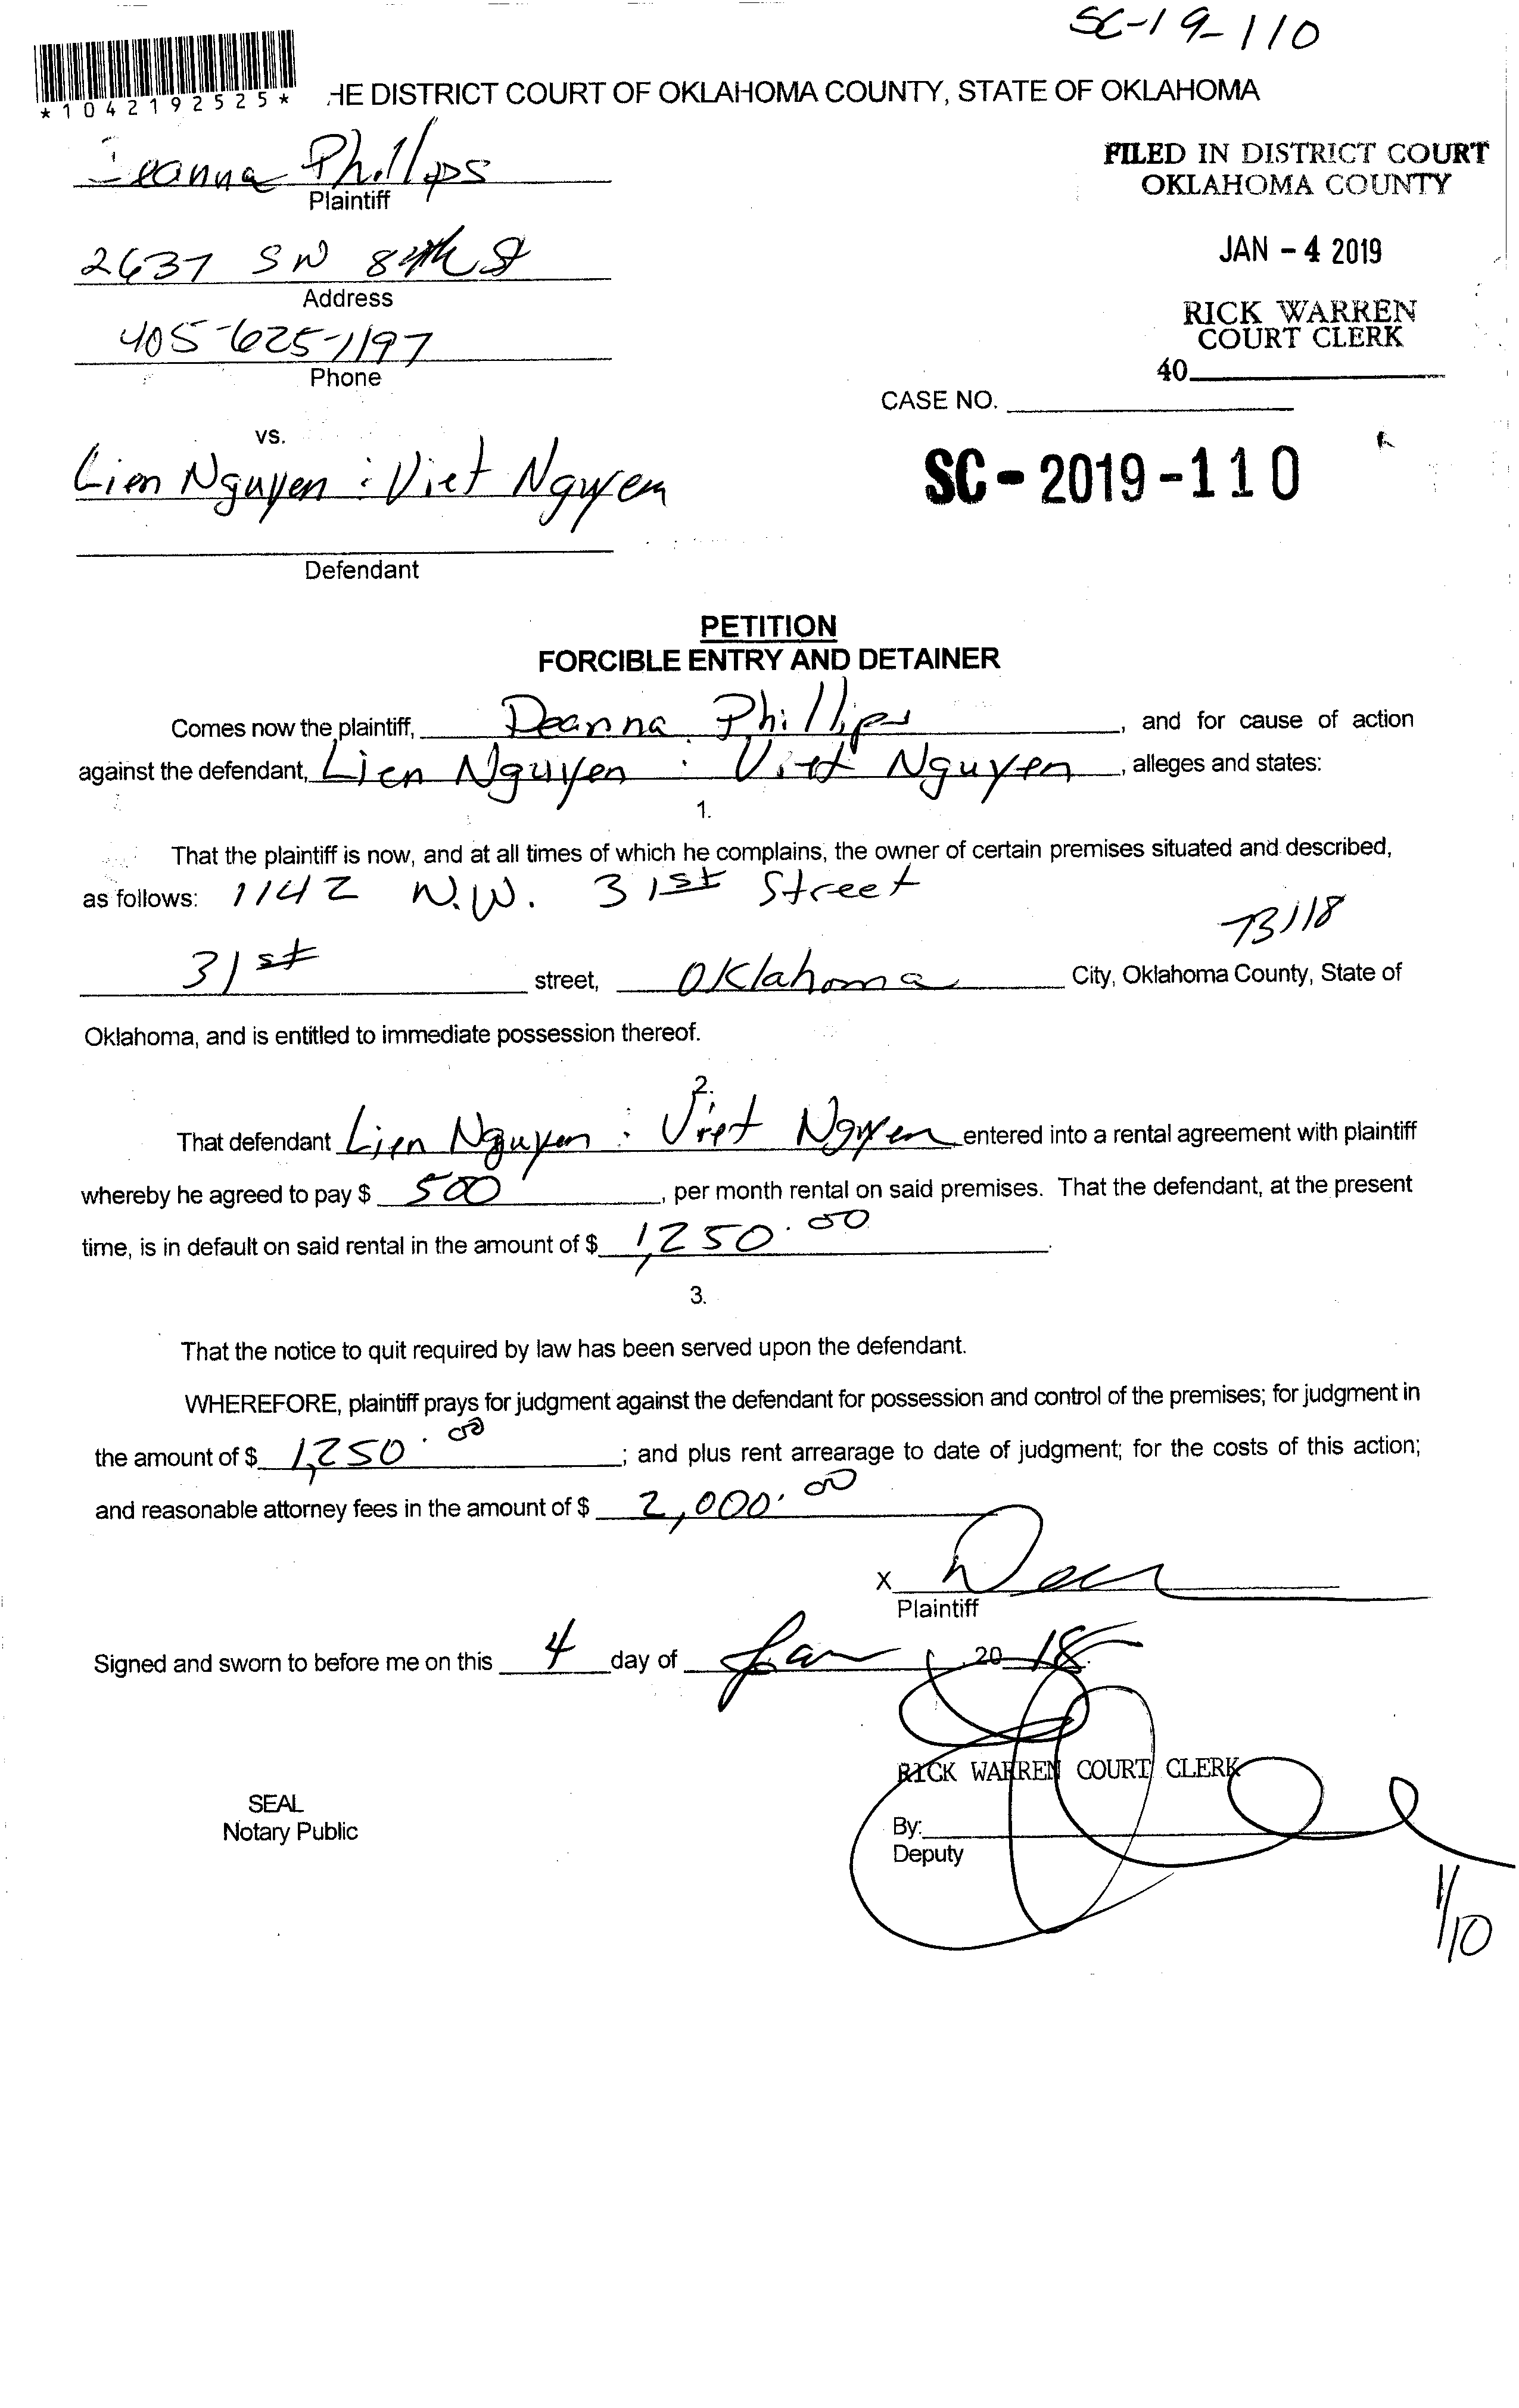 SC-19-110
*1042192525*
HE DISTRICT COURT OF OKLAHOMA COUNTY, STATE OF OKLAHOMA
Deanna Phillips
Plaintiff
FILED IN DISTRICT COURT
OKLAHOMA COUNTY
2637 SW 84th St
Address
JAN - 4 2019
405-625-1197
Phone
RICK WARREN
COURT CLERK
40
CASE NO.
vs.
Lien Nguyen : Viet Nguyen
SC - 2019 - 110
Defendant
PETITION
FORCIBLE ENTRY AND DETAINER
Comes now the plaintiff, Deanna Phillips, and for cause of action
against the defendant, Lien Nguyen : Viet Nguyen, alleges and states:
1.
That the plaintiff is now, and at all times of which he complains, the owner of certain premises situated and described,
as follows: 1142 N.W. 31st Street
73118
31st street, Oklahoma City, Oklahoma County, State of
Oklahoma, and is entitled to immediate possession thereof.
2.
That defendant Lien Nguyen : Viet Nguyen entered into a rental agreement with plaintiff
whereby he agreed to pay $ 500, per month rental on said premises. That the defendant, at the present
time, is in default on said rental in the amount of $ 1,250.00.
3.
That the notice to quit required by law has been served upon the defendant.
WHEREFORE, plaintiff prays for judgment against the defendant for possession and control of the premises; for judgment in
the amount of $ 1,250.00; and plus rent arrearage to date of judgment; for the costs of this action;
and reasonable attorney fees in the amount of $ 2,000.00
X
Plaintiff
Signed and sworn to before me on this 4 day of Jan, 20 18
RICK WARREN COURT CLERK
SEAL
Notary Public
By:
Deputy
1/10